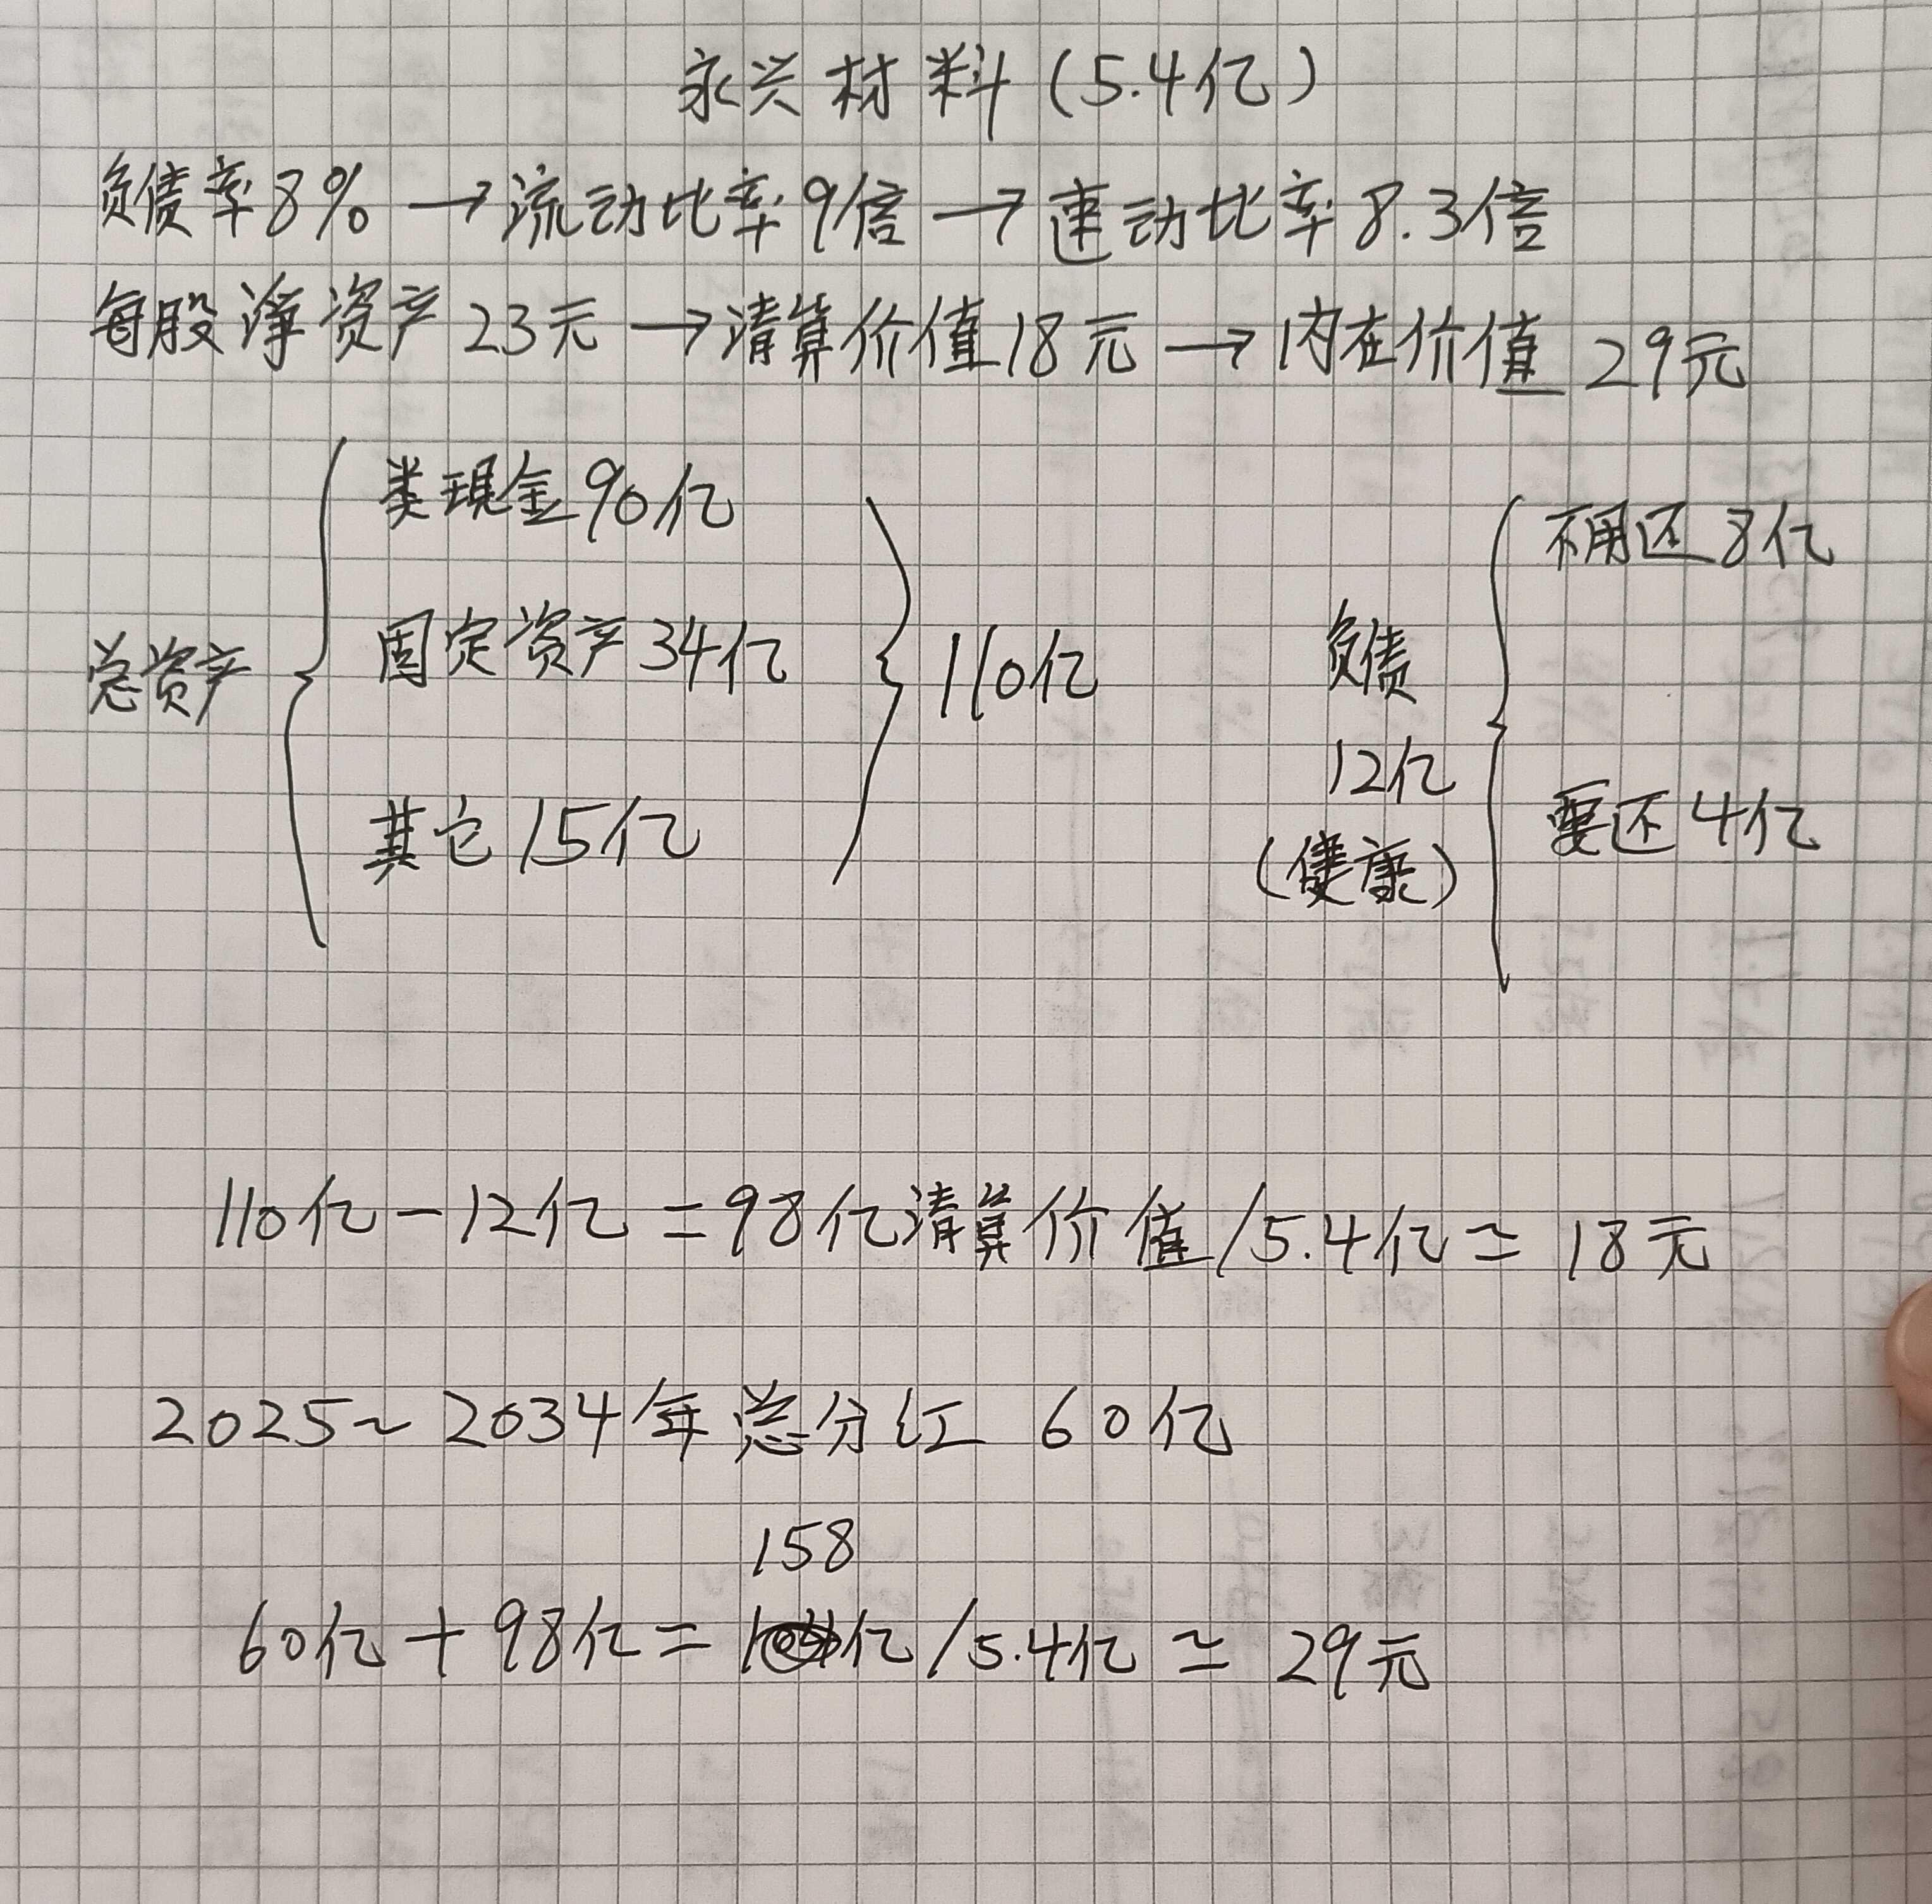 永兴材料(5.4亿)
负债率8%→流动比率9倍→速动比率8.3倍
每股净资产23元→清算价值18元→内在价值29元
类现金90亿
固定资产34亿
总资产
其它15亿
110亿
不用还8亿
负债
12亿
(健康)
要还4亿
110亿-12亿=98亿清算价值/5.4亿=18元
2025~2034年总分红 60亿
158
60亿+98亿=亿/5.4亿=29元